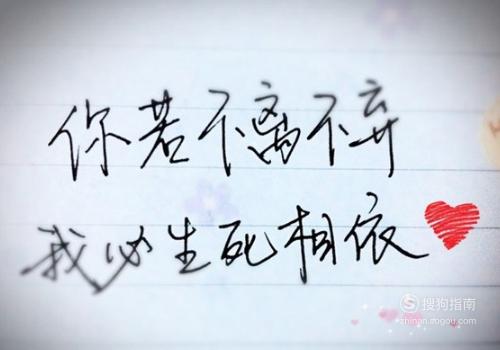 你若不离不弃
我必生死相依
搜狗指南
zhinan.sogou.com